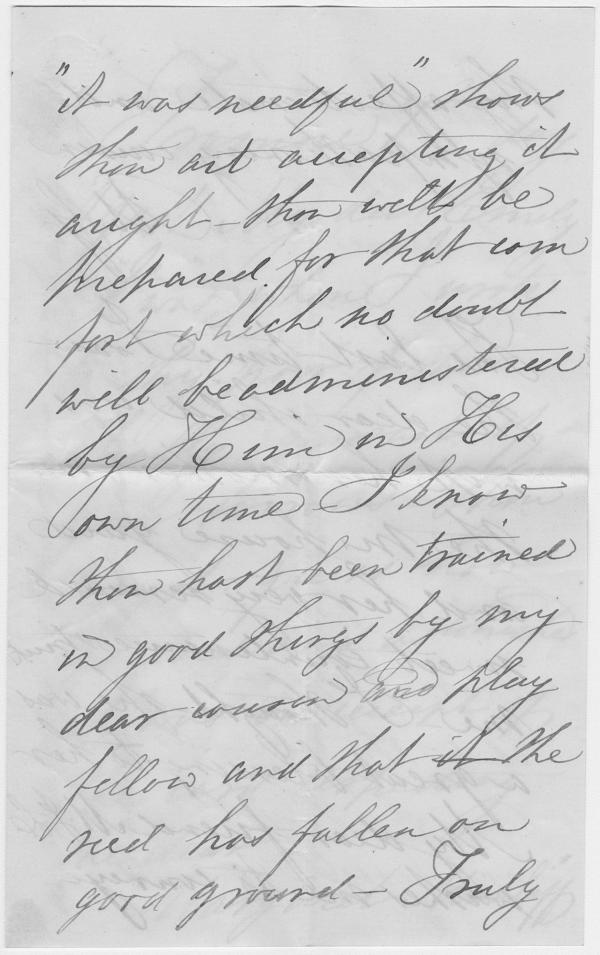 "it was needful" shows
thou art accepting it
aright – thou wilt be
prepared for that com
fort which no doubt
will be administered
by Him in His
own time – I know
thou hast been trained
in good things by my
dear cousin and play
fellow and that it the
seed has fallen on
good ground – Truly